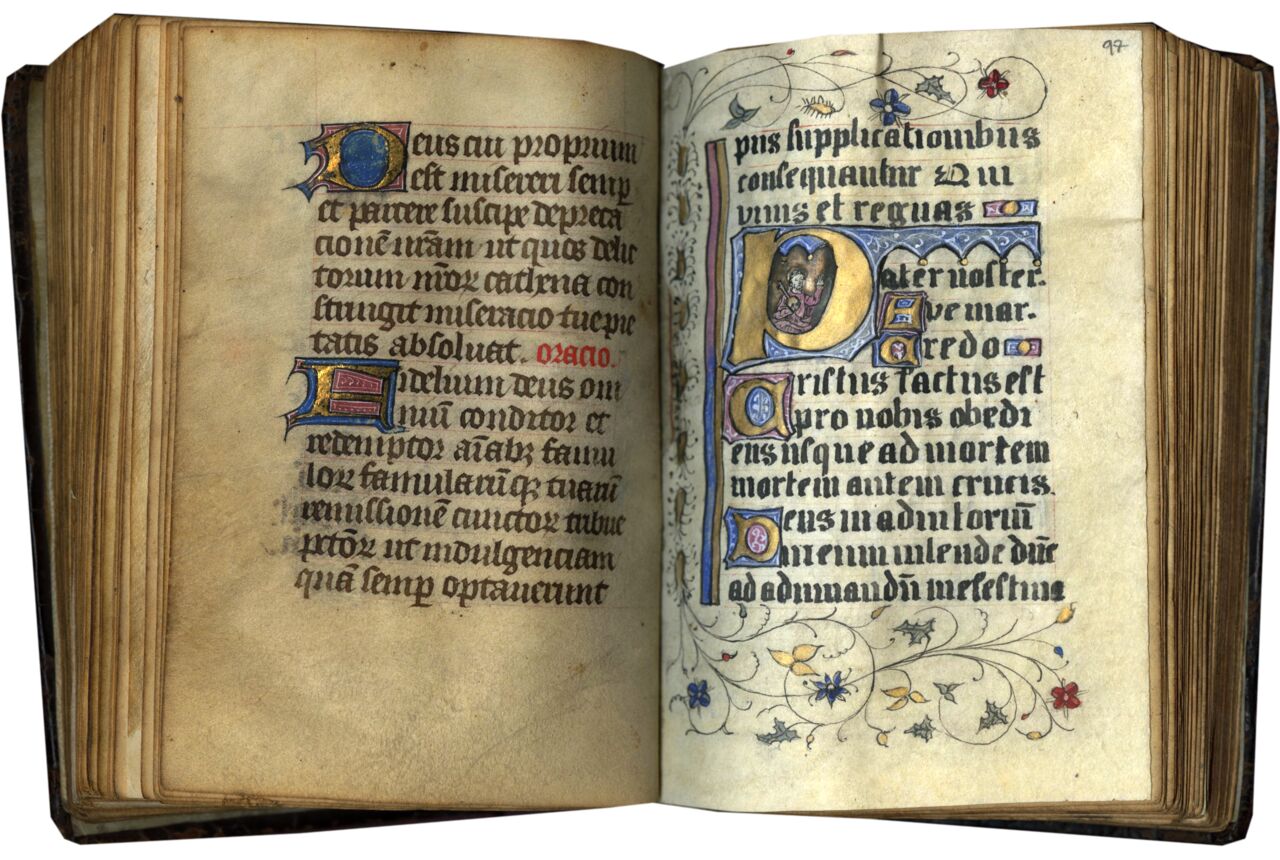 Deus cui proprium
est misereri semꝑ
et parcere suscipe depreca
cionē nr̄am ut quos delic
torum nr̄oꝝ cathena con
stringit miseracio tue pie
tatis absoluat. oracio.
Fidelium deus om
nium conditor et
redemptor aīabꝫ famu
loꝝ famularūqꝫ tuarū
remissionē cunctoꝝ tribue
pctōꝝ ut indulgenciam
quā semꝑ optauerunt
97
piis supplicationibus
consequantur Qui
viuis et regnas
Pater noster.
Ave mar.
Credo
Cristus factus est
pro nobis obedi
ens usque ad mortem
mortem autem crucis.
Deus in adiutoriū
meum intende dn̄e
ad adiuuandū me festina